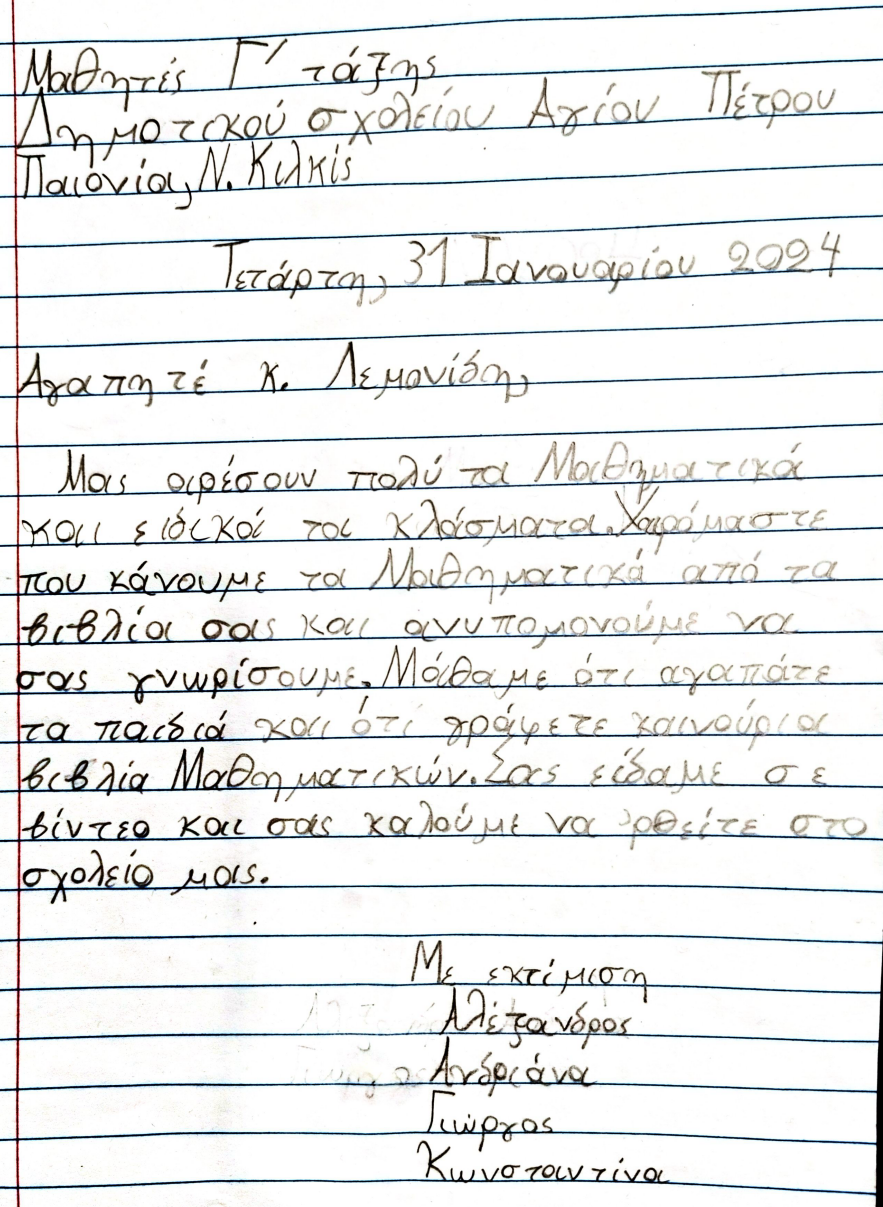 Μαθητές Γ' τάξης
Δημοτικού σχολείου Αγίου Πέτρου
Παιονία, Ν. Κιλκίς
Τετάρτη, 31 Ιανουαρίου 2024
Αγαπητέ κ. Λεμονίδη,
Μας αρέσουν πολύ τα Μαθηματικά
και ειδικά τα κλάσματα. Χαιρόμαστε
που κάνουμε τα Μαθηματικά από τα
βιβλία σας και ανυπομονούμε να
σας γνωρίσουμε. Μάθαμε ότι αγαπάτε
τα παιδιά και ότι γράφετε καινούρια
βιβλία Μαθηματικών. Σας είδαμε σε
βίντεο και σας καλούμε να 'ρθείτε στο
σχολείο μας.
Με εκτίμιση
Αλέξανδρος
Ανδριάνα
Γιώργος
Κωνσταντίνα